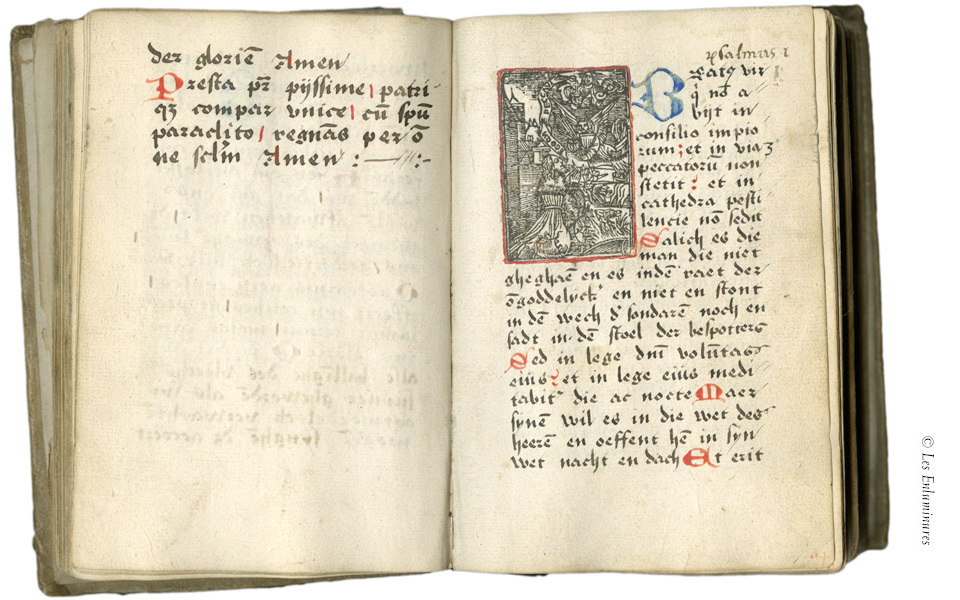 der gloriē Amen
Presta pr̄ pijssime patri
qȝ compar vnice cū spū
paraclito regnās per ō
ne sclm̄ Amen :
psalmus 1
Beatꝰ vir
q̄ nō a
bijt in
consilio impio
rum et in viaȝ
peccatorū non
stetit et in
cathedra pesti
lencie nō sedit
Salich es die
man die niet
gheghaē en es indē raet der
ōgoddelijck en niet en stont
in dē wech d' sondarē noch en
sadt in dē stoel der bespotters
Sed in lege dn̄i volūtas
eiüs et in lege eiüs medi
tabit' die ac nocte Maer
synē wil es in die wet des
heerē en oeffent hē in syn
wet nacht en dach Et erit
© Les Enluminures